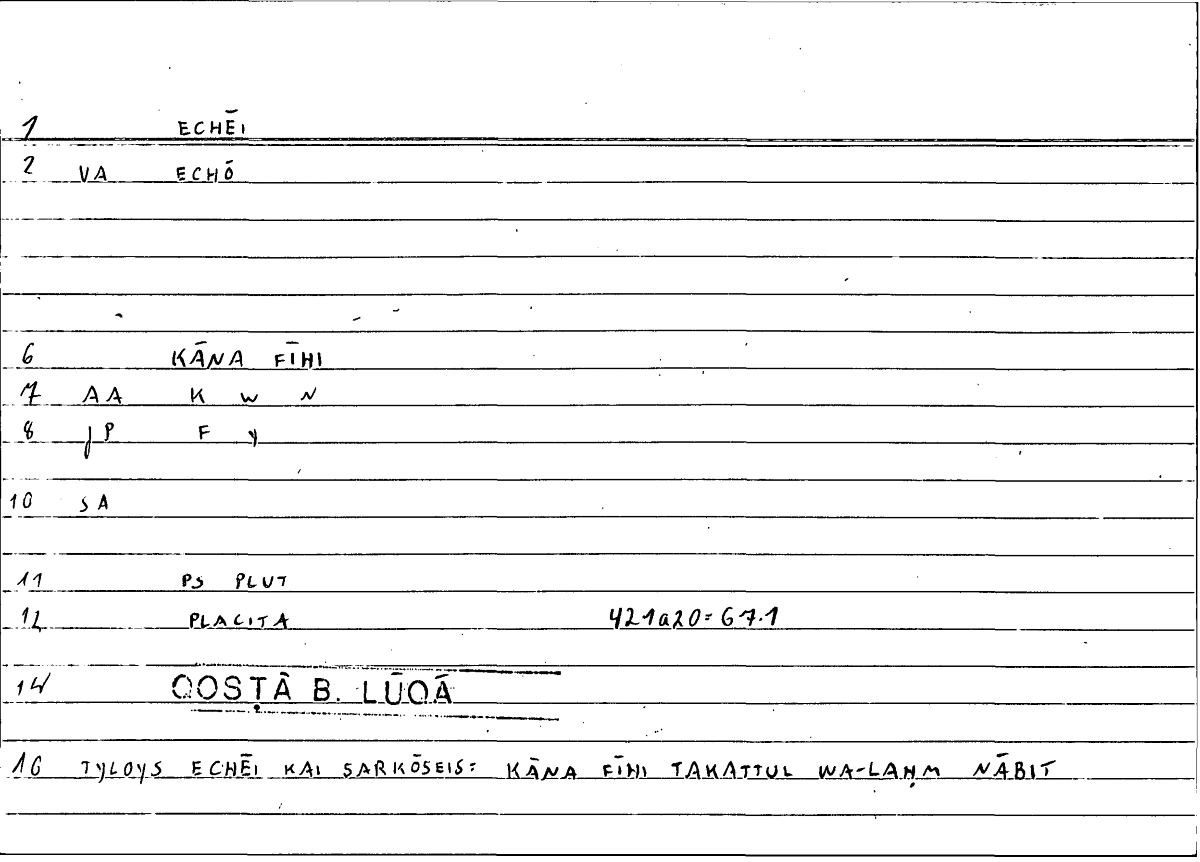 1 ECHĒI
2 VA ECHŌ
6 KĀNA FĪHI
7 AA K W N
8 JP F Y
10 SA
11 PS PLUT
12 PLACITA 421a20=67.1
14 QOSṬĀ B. LŪQĀ
16 TYLOYS ECHĒI KAI SARKŌSEIS: KĀNA FĪHI TAKATTUL WA-LAḤM NĀBIT